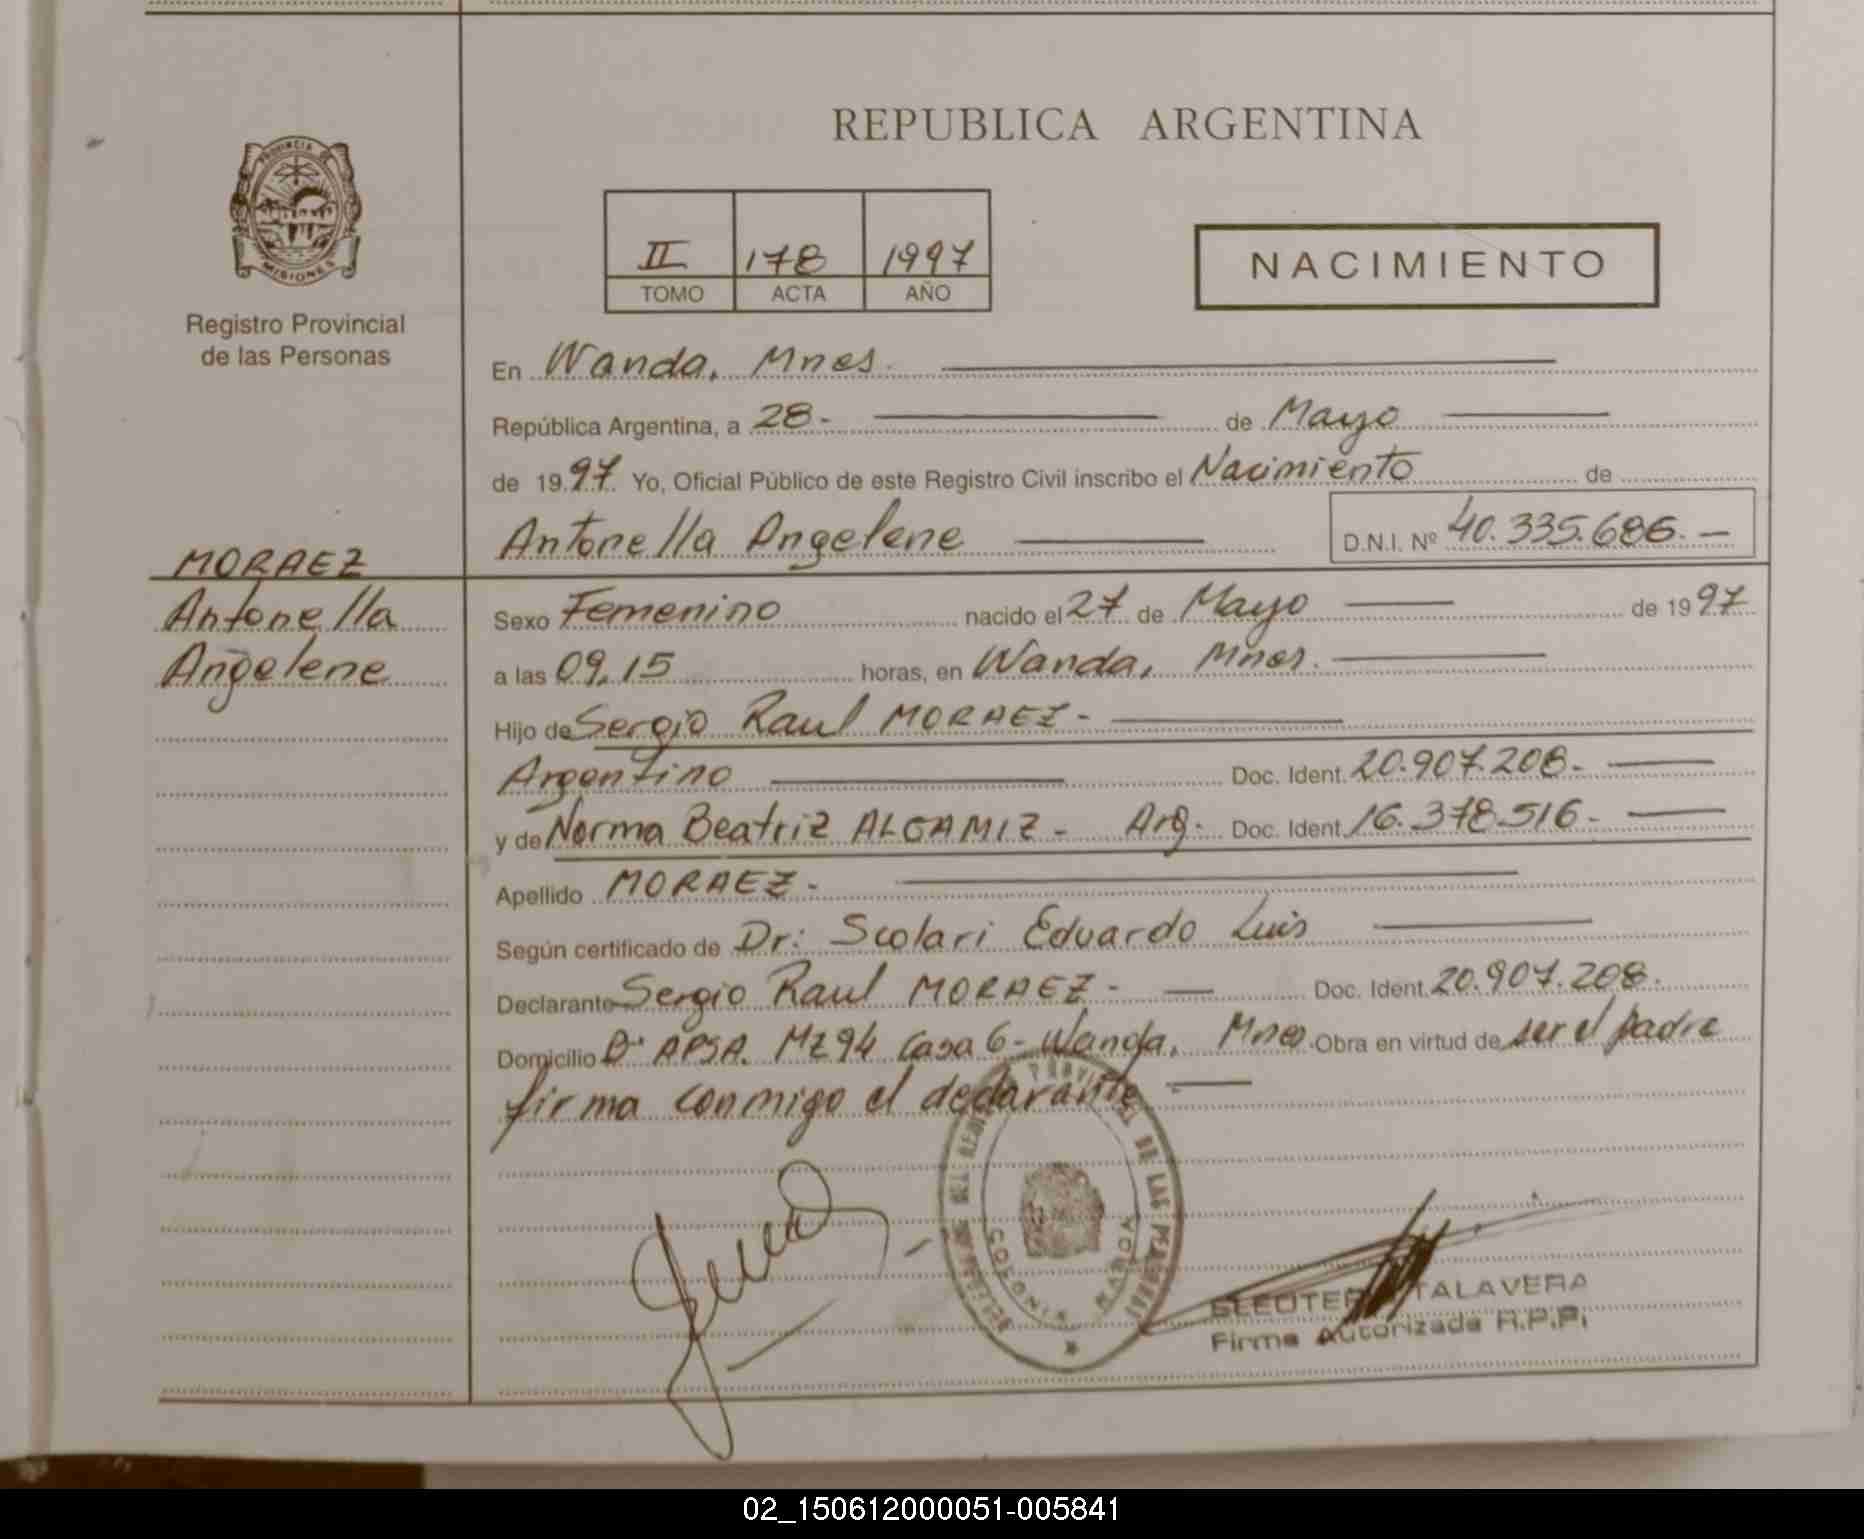 REPUBLICA ARGENTINA
PROVINCIA DE
MISIONES
Registro Provincial
de las Personas
II 178 1997
TOMO ACTA AÑO
NACIMIENTO
En Wanda, Mnes.
República Argentina, a 28- de Mayo
de 1997 Yo, Oficial Público de este Registro Civil inscribo el Nacimiento de
Antonella Angelene D.N.I. Nº 40.335.686.-
MORAEZ
Antonella
Angelene
Sexo Femenino nacido el 27 de Mayo de 1997
a las 09,15 horas, en Wanda, Mnes.
Hijo de Sergio Raul MORAEZ-
Argentino Doc. Ident. 20.907.208-
y de Norma Beatriz ALGAMIZ- Arg. Doc. Ident. 16.378.516-
Apellido MORAEZ-
Según certificado de Dr: Scolari Eduardo Luis
Declarante Sergio Raul MORAEZ- Doc. Ident. 20.907.208.
Domicilio Bº APSA. Mz 94 Casa 6- Wanda, Mnes. Obra en virtud de ser el padre
firma conmigo el declarante
DE LAS
COLONIA WANDA
TALAVERA
Firma Autorizada R.P.P.
02_150612000051-005841